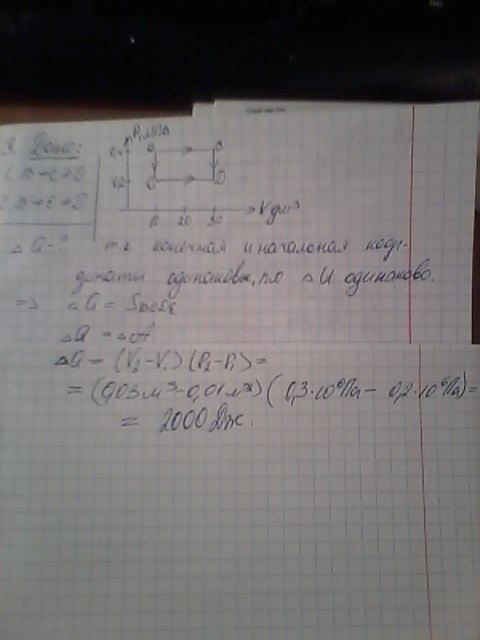 Дано:
P, МПа
B C
E D
10 20 30 V дм³
ΔQ-? т.к конечная и начальная коор-
динаты одинаковы, то ΔU одинаково.
=> ΔQ =
ΔQ = ΔA
ΔQ = (V₂-V₁)(P₂-P₁)=
= (0,03 м³-0,01 м³) (0,3·10⁶Па- 0,2·10⁶Па)=
= 2000 Дж.